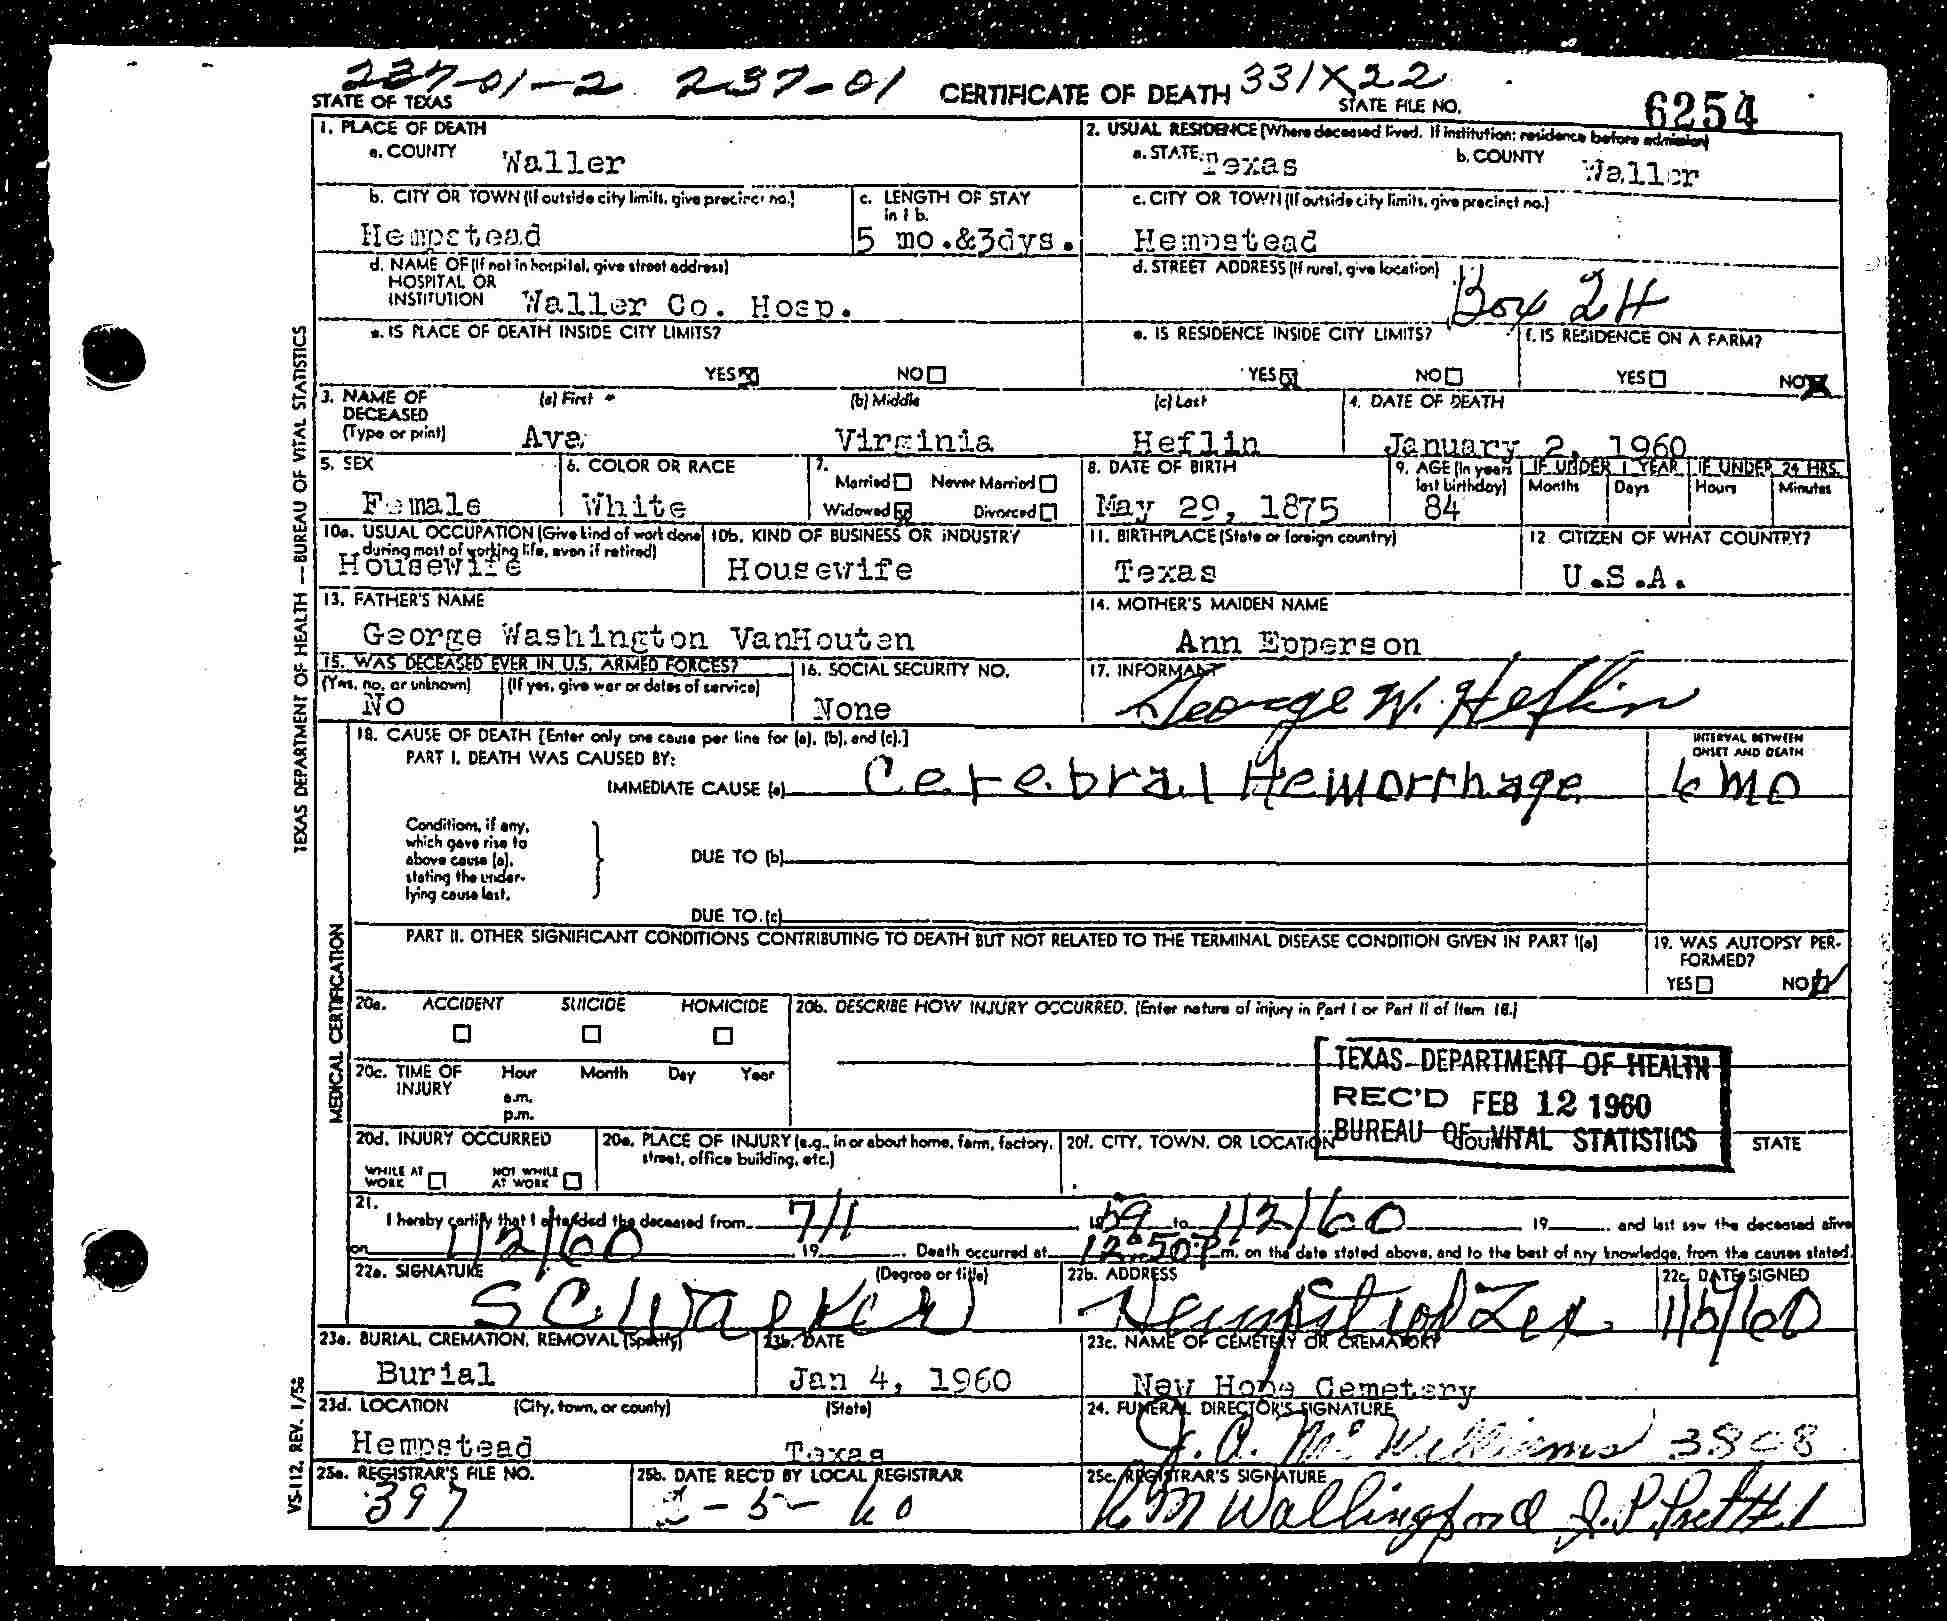 237-01-2 237-01 CERTIFICATE OF DEATH 331X22
STATE OF TEXAS STATE FILE NO. 6254
1. PLACE OF DEATH
a. COUNTY Waller
2. USUAL RESIDENCE (Where deceased lived. If institution: residence before admission)
a. STATE Texas b. COUNTY Waller
b. CITY OR TOWN (If outside city limits, give precinct no.) Hempstead
c. LENGTH OF STAY in 1 b. 5 mo.&3dys.
c. CITY OR TOWN (If outside city limits, give precinct no.) Hempstead
d. NAME OF (If not in hospital, give street address)
HOSPITAL OR
INSTITUTION Waller Co. Hosp.
d. STREET ADDRESS (If rural, give location) Box 24
e. IS PLACE OF DEATH INSIDE CITY LIMITS?
YES NO
e. IS RESIDENCE INSIDE CITY LIMITS?
YES NO
f. IS RESIDENCE ON A FARM?
YES NO
3. NAME OF DECEASED (Type or print)
(a) First Ava (b) Middle Virginia (c) Last Heflin
4. DATE OF DEATH January 2, 1960
5. SEX Female
6. COLOR OR RACE White
7. Married Never Married
Widowed Divorced
8. DATE OF BIRTH May 29, 1875
9. AGE (In years last birthday) 84
IF UNDER 1 YEAR Months Days
IF UNDER 24 HRS. Hours Minutes
10a. USUAL OCCUPATION (Give kind of work done during most of working life, even if retired) Housewife
10b. KIND OF BUSINESS OR INDUSTRY Housewife
11. BIRTHPLACE (State or foreign country) Texas
12. CITIZEN OF WHAT COUNTRY? U.S.A.
13. FATHER'S NAME George Washington VanHouten
14. MOTHER'S MAIDEN NAME Ann Epperson
15. WAS DECEASED EVER IN U.S. ARMED FORCES?
(Yes, no, or unknown) No (If yes, give war or dates of service)
16. SOCIAL SECURITY NO. None
17. INFORMANT George W. Heflin
18. CAUSE OF DEATH [Enter only one cause per line for (a), (b), and (c).]
INTERVAL BETWEEN ONSET AND DEATH
PART I. DEATH WAS CAUSED BY:
IMMEDIATE CAUSE (a) Cerebral Hemorrhage 6 mo
Conditions, if any,
which gave rise to
above cause (a),
stating the under-
lying cause last.
DUE TO (b)
DUE TO (c)
PART II. OTHER SIGNIFICANT CONDITIONS CONTRIBUTING TO DEATH BUT NOT RELATED TO THE TERMINAL DISEASE CONDITION GIVEN IN PART I(a)
19. WAS AUTOPSY PER-
FORMED?
YES NO
20a. ACCIDENT SUICIDE HOMICIDE
20b. DESCRIBE HOW INJURY OCCURRED. (Enter nature of injury in Part I or Part II of Item 18.)
20c. TIME OF INJURY Hour Month Day Year
a.m.
p.m.
TEXAS DEPARTMENT OF HEALTH
REC'D FEB 12 1960
BUREAU OF VITAL STATISTICS
20d. INJURY OCCURRED
WHILE AT WORK NOT WHILE AT WORK
20e. PLACE OF INJURY (e.g., in or about home, farm, factory, street, office building, etc.)
20f. CITY, TOWN, OR LOCATION COUNTY STATE
21. I hereby certify that I attended the deceased from 7/1 1959 to 1/2/60 19 and last saw the deceased alive
on 1/2/60 19 Death occurred at 12:50 P.m. on the date stated above, and to the best of my knowledge, from the causes stated.
22a. SIGNATURE (Degree or title) S C Walker
22b. ADDRESS Hempstead Tex
22c. DATE SIGNED 1/5/60
23a. BURIAL, CREMATION, REMOVAL (Specify) Burial
23b. DATE Jan 4, 1960
23c. NAME OF CEMETERY OR CREMATORY New Hope Cemetery
23d. LOCATION (City, town, or county) (State)
Hempstead Texas
24. FUNERAL DIRECTOR'S SIGNATURE J. A. McWilliams 3808
25a. REGISTRAR'S FILE NO. 397
25b. DATE REC'D BY LOCAL REGISTRAR -5-60
25c. REGISTRAR'S SIGNATURE Wallingford J.P. Prct #1
TEXAS DEPARTMENT OF HEALTH — BUREAU OF VITAL STATISTICS
MEDICAL CERTIFICATION
VS-112, REV. 1/58